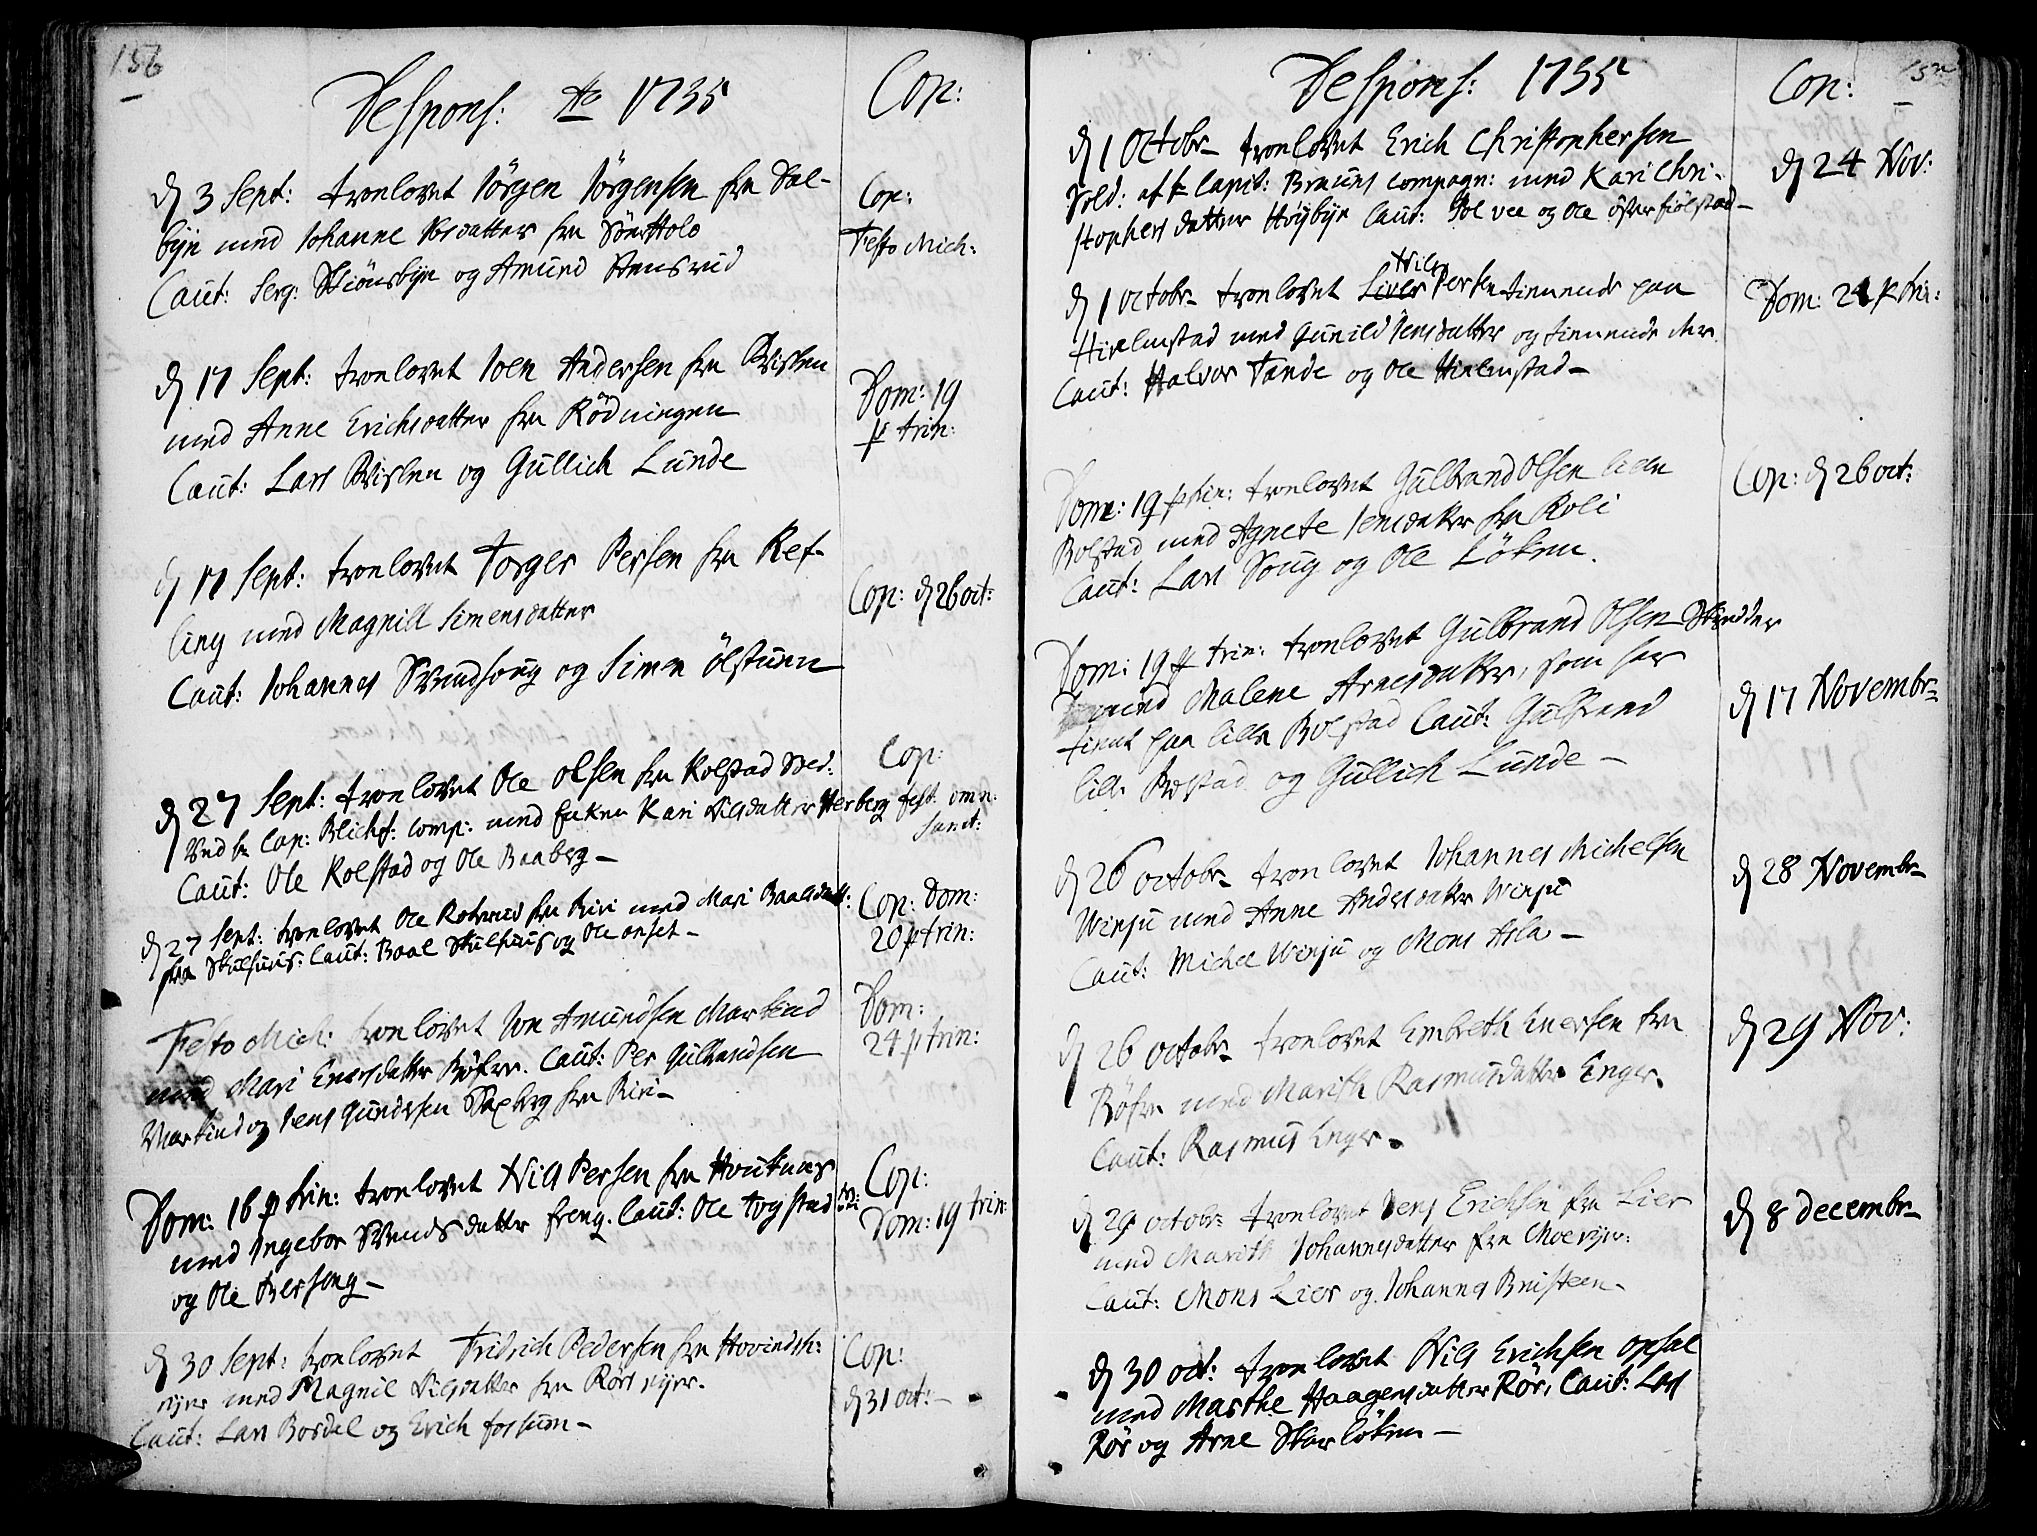 156
Despons: Ao 1735
Cop:
d 3 Sept: troelovet Jörgen Jörgensen fra Dal-
byn med Johanne fra
Caut: Serg: Skiönsbyn og Amund Stensrud
Cop:
Festo Mich:
d 17 Sept: troelovet Joen Andersen fra
med Anne Erichsdatter fra Rödningen
Caut: Lars og Gullich Lunde
Dom: 19
p trin:
d 17 Sept: troelovet Torger Persen fra Ref-
ling med Magnill Simensdatter
Caut: Johannes og Simen Ölstuen
Cop: d 26 oct:
d 27 Sept: troelovet Ole Olsen fra Kolstad
ved Cap: Blichf: Comp: med Enken Kari Nilsdatter Herberg
Caut: Ole Kolstad og Ole Baaberg
Cop:
fest: omn:
Sanct:
d 27 Sept: troelovet Ole fra Riri med Mari Baalsdatt:
fra Skulhuus: Caut: Baal Skulhuus og Ole onset
Cop: Dom:
20 p trin:
Festo Mich: troelovet Jon Amundsen
med Mari Enersdatter Böfre. Caut: Per Gulbrandsen
og Jens Gundersen fra Riri
Dom:
24 p trin:
Dom: 16 p trin: troelovet Nils Persen fra
med Ingebor Svendsdatter Freng. Caut: Ole
og Ole Bersong
Cop:
Dom: 19 trin:
d 30 Sept: troelovet Fridrich Pedersen fra Hovindsh:
eyer med Magnil Nilsdatter fra Rörs eyer.
Caut: Lars Bordel og Erich fossum
Cop:
d 31 oct:
Despons: 1735
Cop:
d 1 Octobr troelovet Erich Christophersen
Sold: af hr Capit: Bruuns Compagn: med Kari Chri-
stophersdatter Höybye Caut: Sol vee og Ole öfter fiölstad
d 24 Nov:
d 1 octobr troelovet Nils Persen tienende paa
Hielmstad med Gunild Jensdatter og tienende der
Caut: Halvor Tande og Ole Hielmstad
Dom: 24 p tri:
Dom: 19 p trin: troelovet Gulbrand Olsen lille
Bolstad med Agnete Jensdatter fra Roli
Caut: Lars Soug og Ole Löken.
Cop: d 26 oct:
Dom: 19 p trin: troelovet Gulbrand Olsen Skredder
med Malene Arnesdatter, som har
tient paa lille Bolstad Caut: Gulbrand
lille Bolstad og Gullich Lunde
d 17 Novembr
d 26 octobr troelovet Johannes Michelsen
Winju med Anne Andersdatter Winju
Caut: Michel Winju og Mons Asla
d 28 Novembr
d 26 octobr troelovet Embreth Enersen fra
Böfre med Marith Rasmusdatter Enger.
Caut: Rasmus Enger
d 29 Nov:
d 29 octobr troelovet Jens Erichsen fra Lier
med Marith Johannesdatter fra Moe eyer:
Caut: Mons Lier og Johannes Bristeen
d 8 decembr
d 30 oct: troelovet Nils Erichsen opsal
med Marthe Haagensdatter Rör, Caut: Lars
Rör og Arne Skarlöken